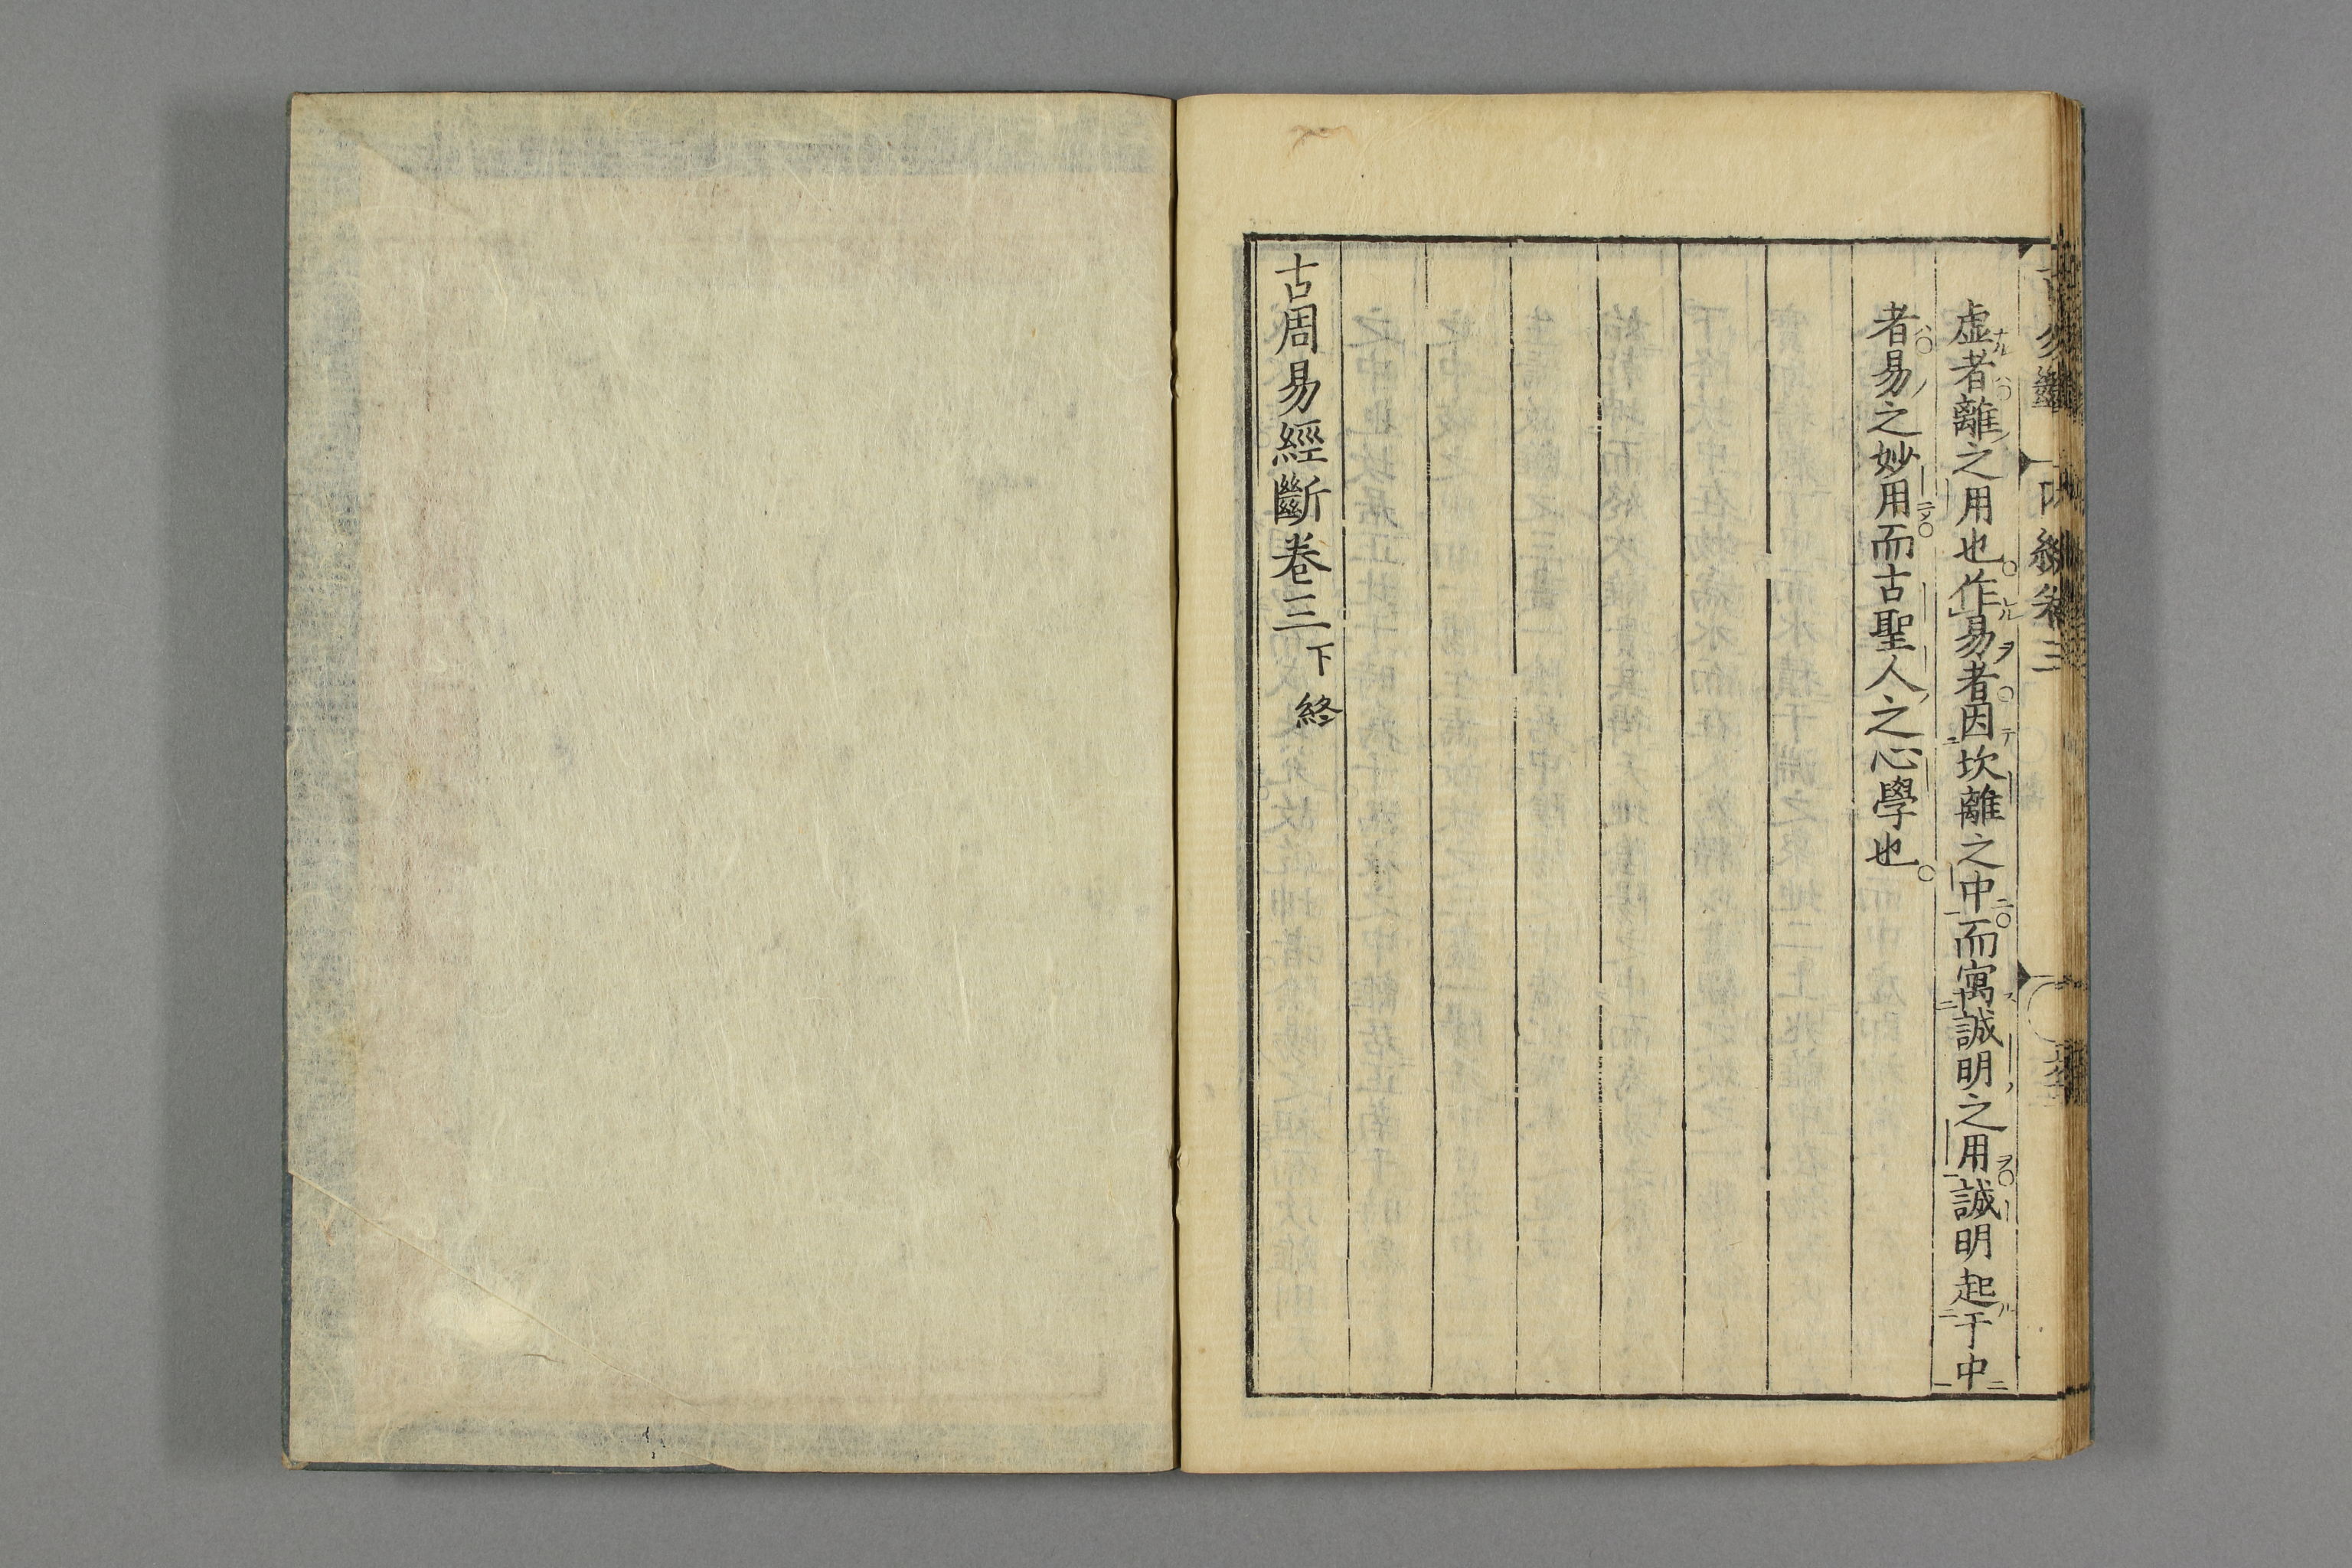 虚者離之用也。作易者。因坎離之中。而寓誠明之用。誠明起于中
者。易之妙用。而古聖人之心學也。
古周易經斷卷三下終